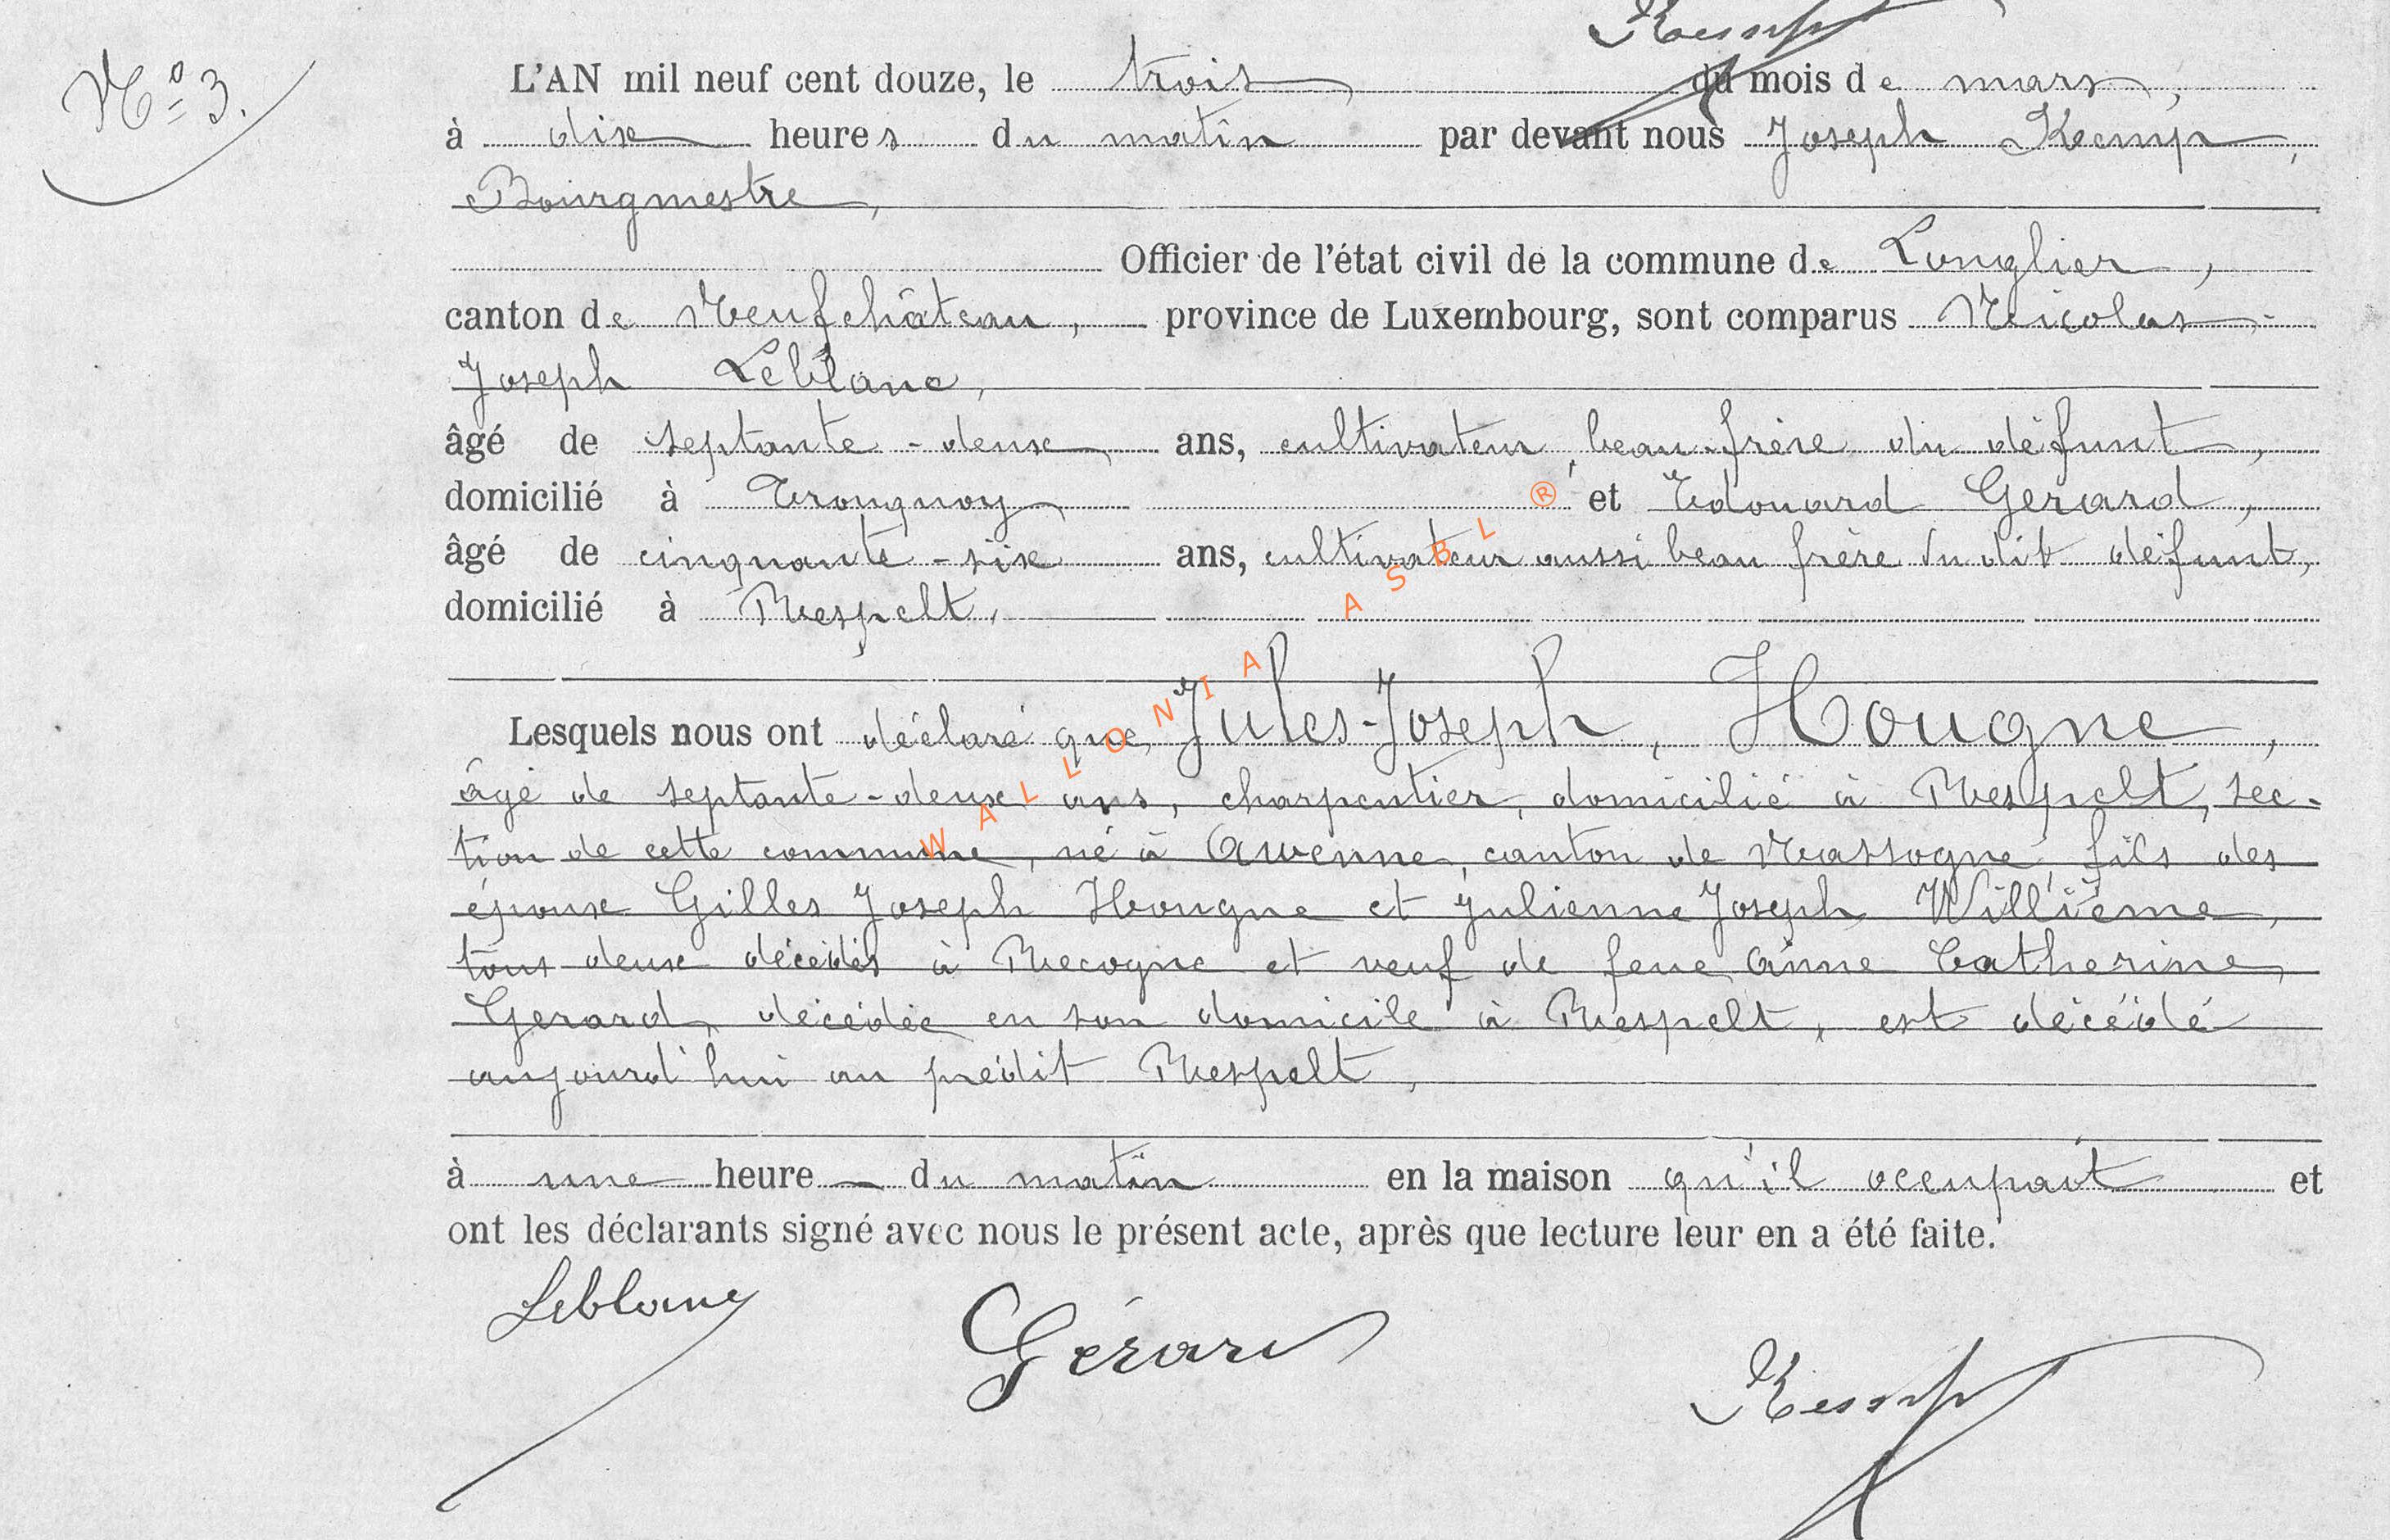 Kemp
N° 3.
L'AN mil neuf cent douze, le trois du mois de mars,
à dix heures du matin par devant nous Joseph Kemp,
Bourgmestre,
Officier de l'état civil de la commune de Longlier,
canton de Neufchâteau, province de Luxembourg, sont comparus Nicolas-
Joseph Leblanc,
âgé de septante-deux ans, cultivateur, beau-frère du défunt,
domicilié à Tronquoy et Edouard Gerard,
âgé de cinquante-six ans, cultivateur aussi beau frère du dit défunt,
domicilié à Respelt,
Lesquels nous ont déclaré que Jules-Joseph, Hougne,
âgé de septante-deux ans, charpentier, domicilié à Respelt, sec-
tion de cette commune, né à Awenne, canton de Nassogne, fils des
époux Gilles Joseph Hougne et Julienne Joseph Willième,
tous deux décédés à Recogne et veuf de feue Anne Catherine
Gerard, décédée en son domicile à Respelt, est décédé
aujourd'hui au prédit Respelt,
à une heure du matin en la maison qu'il occupait et
ont les déclarants signé avec nous le présent acte, après que lecture leur en a été faite.
Leblanc Gérard Kemp
WALLONIA ASBL ®